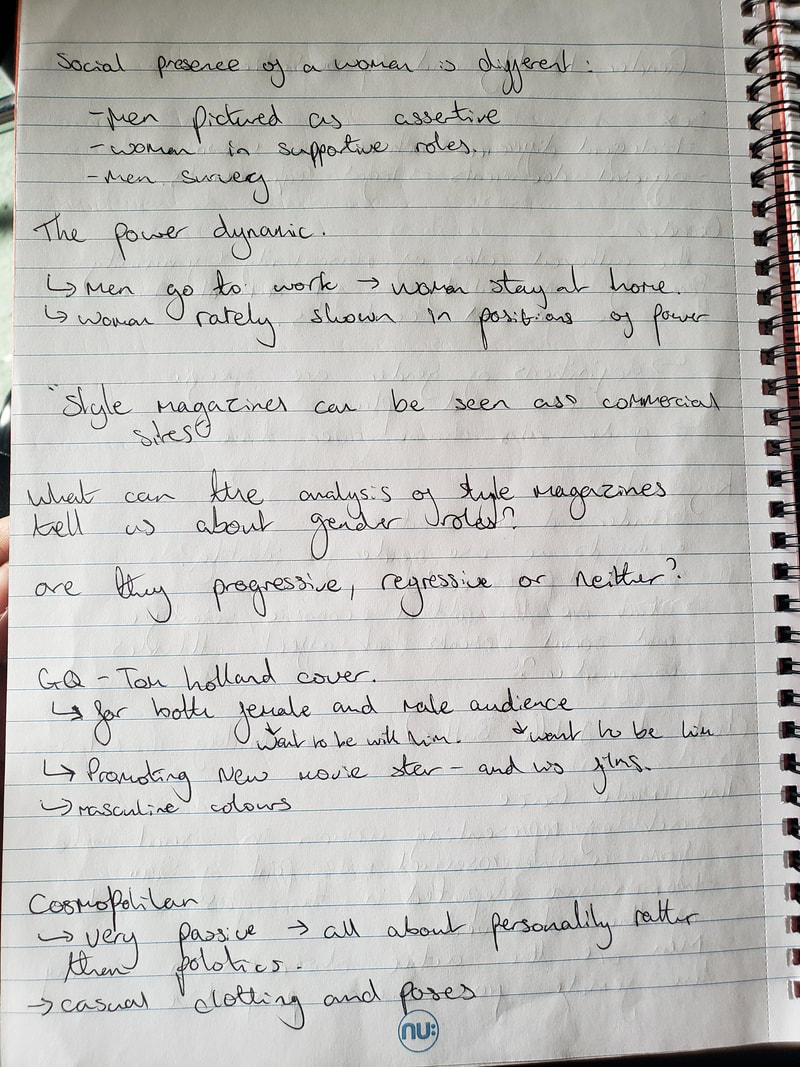 Social presence of a woman is different:
- Men pictured as assertive
- woman in supportive roles.
- Men survey
The power dynamic.
↳ Men go to work → woman stay at home.
↳ woman rately shown in positions of power
"Style magazines can be seen ass commercial
sites"
What can the analysis of style magazines
tell us about gender roles?
are they progressive, regressive or neither?
GQ - Tom holland cover.
↳ for both female and male audience
↓ want to be with him. ↓ want to be him
↳ Promoting New movie ster - and his films.
↳ masculine colours
Cosmopolitan
↳ very passive → all about personality rather
then polotics.
→ casual clothing and poses
nu: